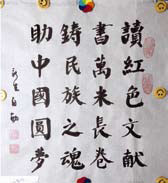 讀紅色文献
書萬米長卷
鑄民族之魂
助中國圓夢